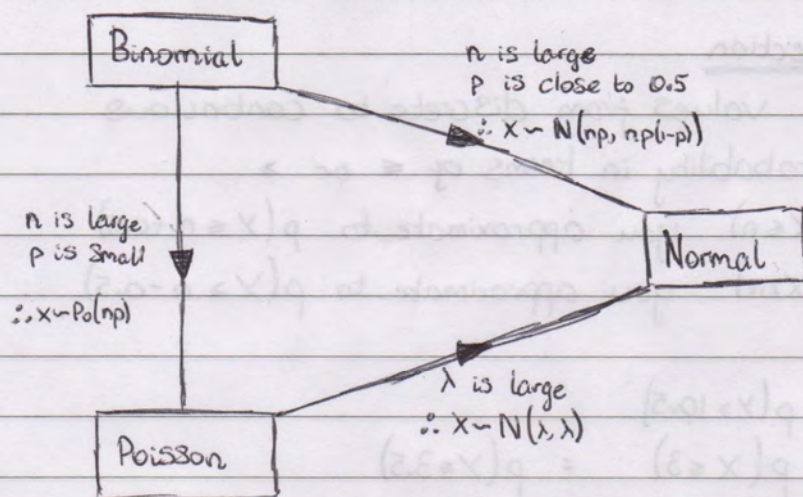 Binomial
n is large
p is close to 0.5
∴ X ~ N(np, np(1-p))
n is large
p is small
∴ X ~ Po(np)
Normal
λ is large
∴ X ~ N(λ, λ)
Poisson